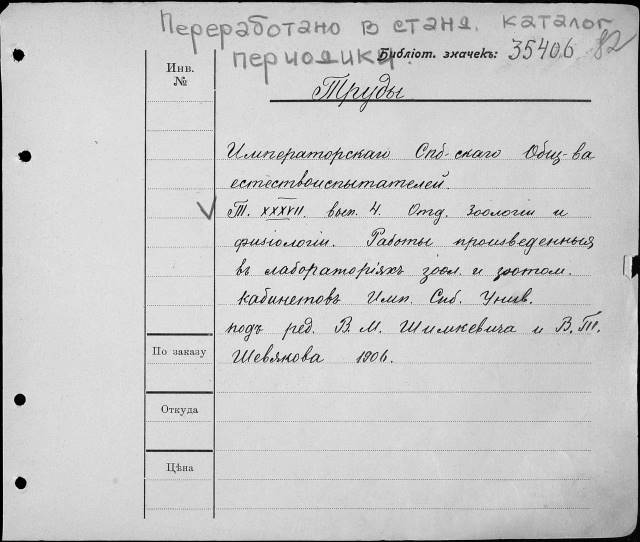 Переработано в станд. каталог
периодики.
Библіот. значекъ: 35406 82
Инв.
№
Труды
Императорскаго Спб-скаго Общ-ва
естествоиспытателей.
Т. XXXVII. вып. 4. Отд. Зоологіи и
физіологіи. Работы произведенныя
въ лабораторіяхъ зоол. и зоотом.
кабинетовъ Имп. Спб. Унив.
подъ ред. В. М. Шимкевича и В. Т.
Шевякова 1906.
По заказу
Откуда
Цѣна